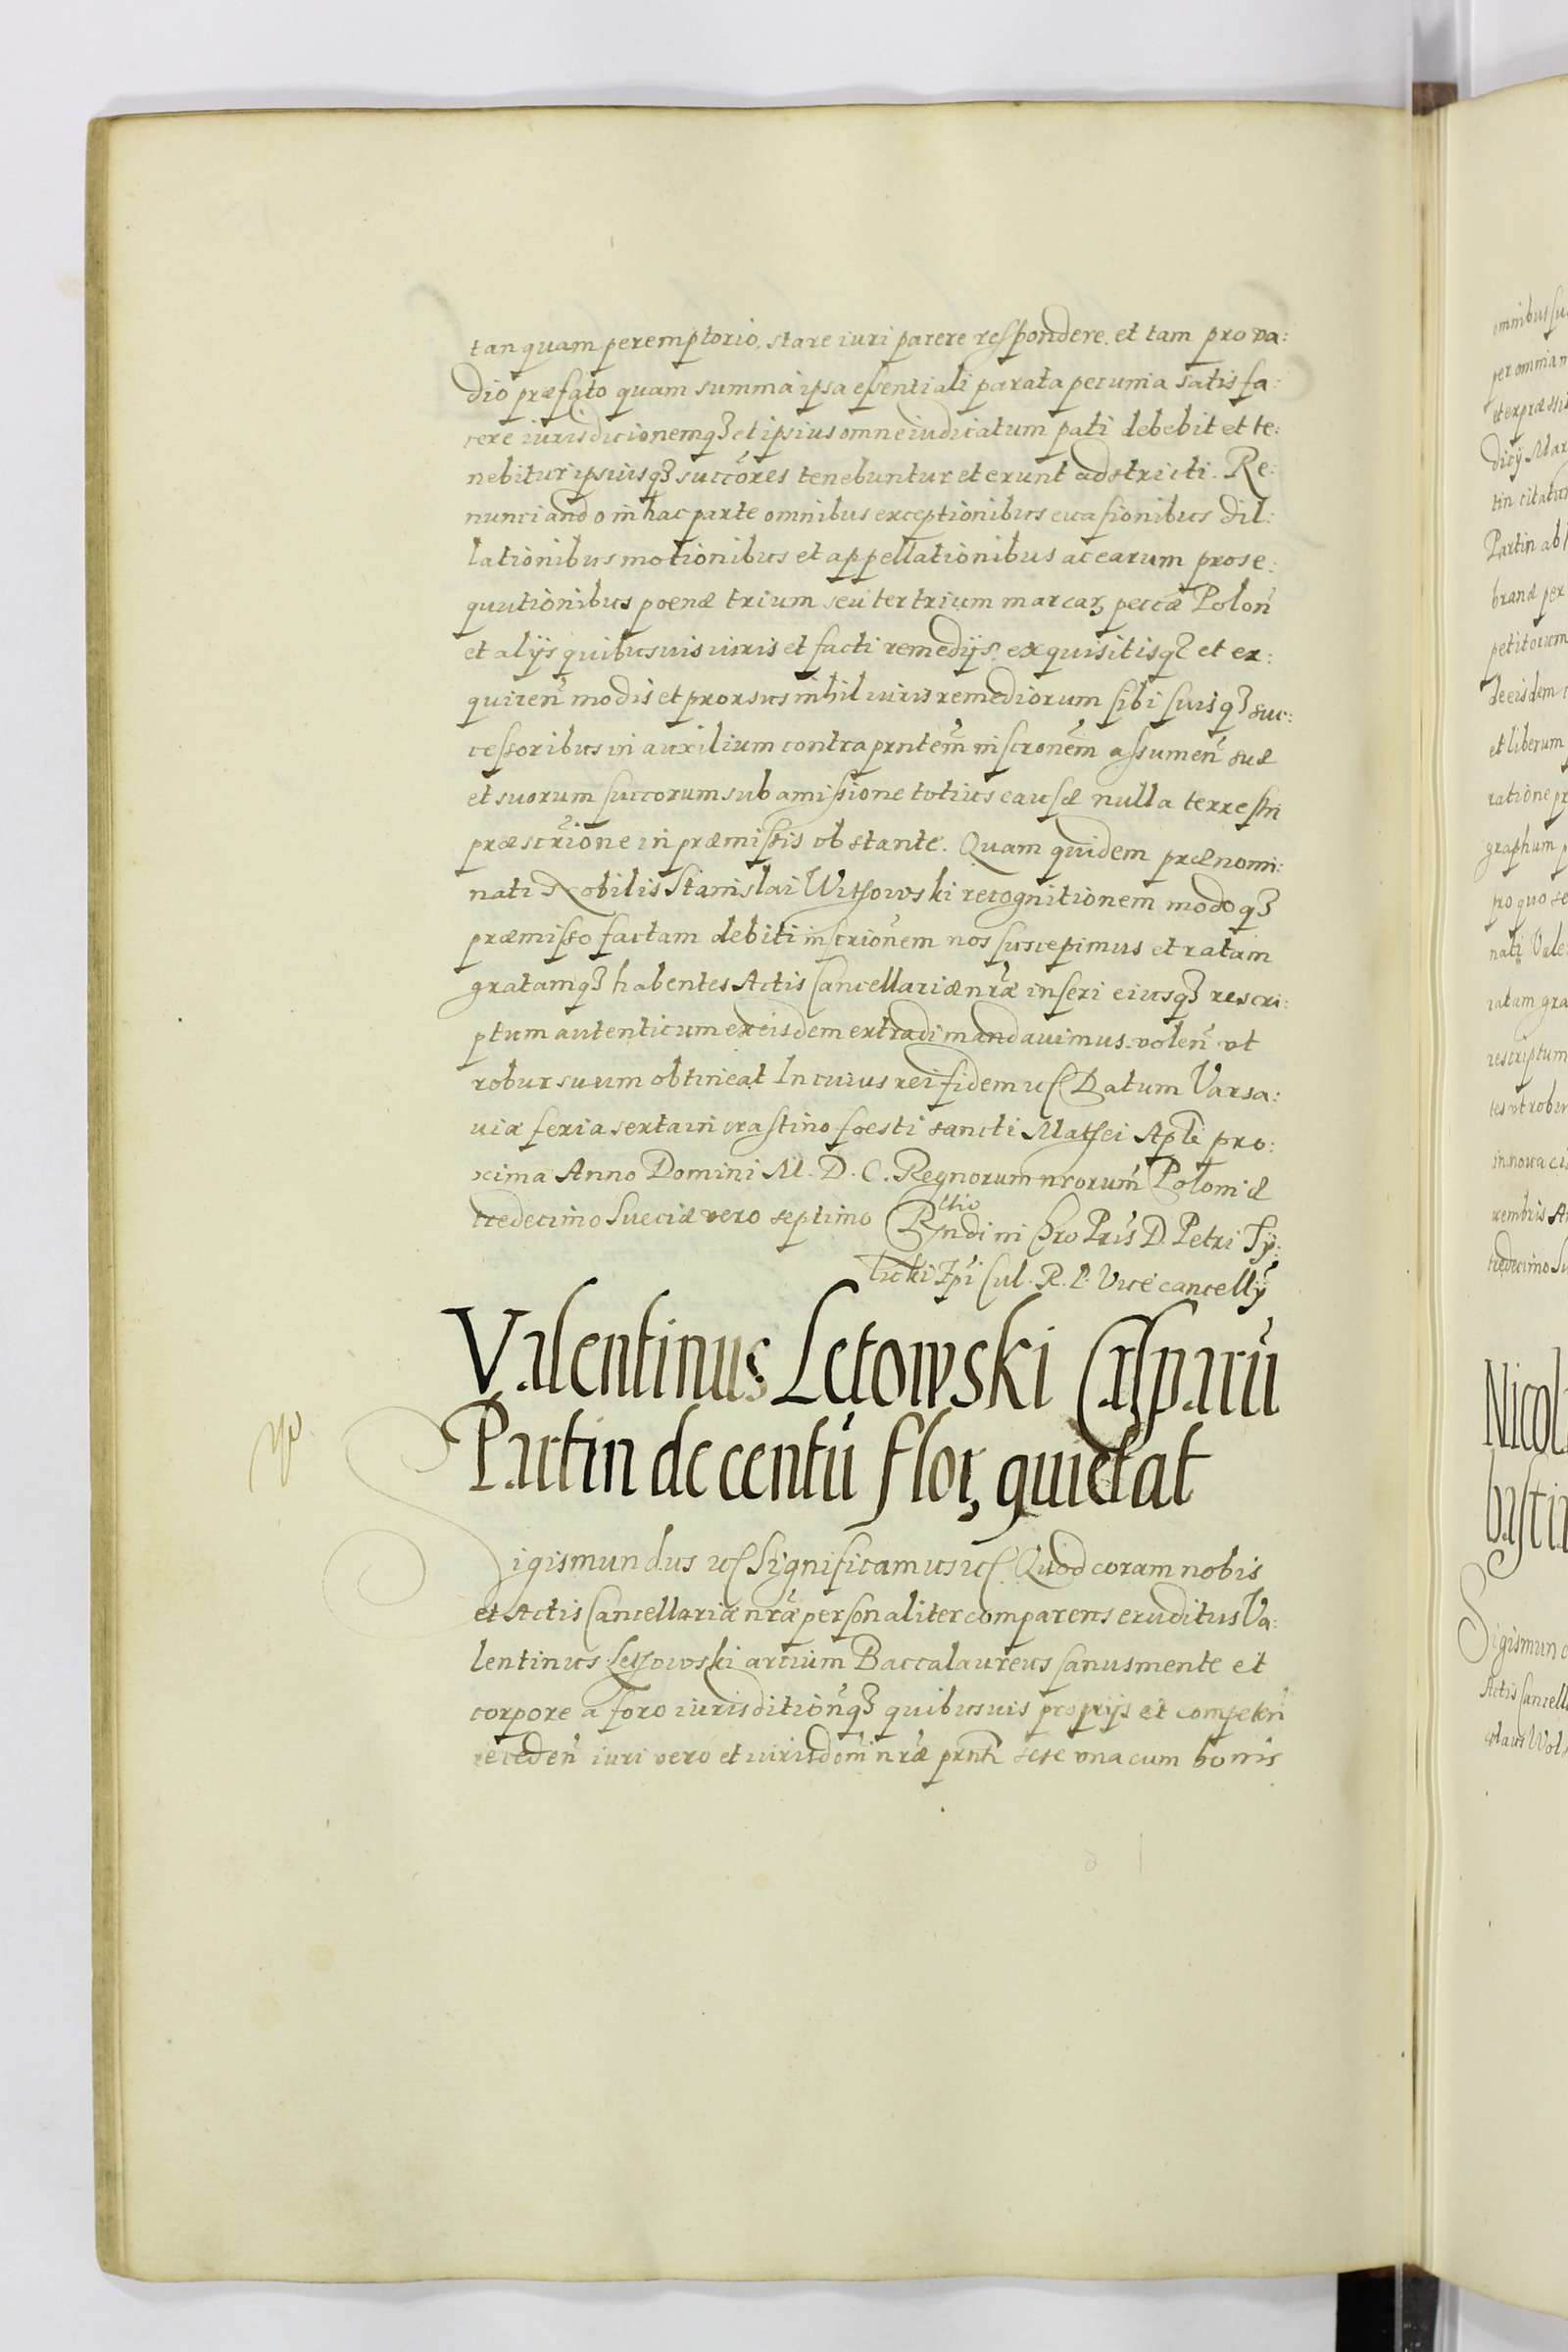 tanquam peremptorio, stare iuri parere respondere, et tam pro va:
dio præfato quam summa ipsa essentiali parata pecunia satisfa:
cere iurisdicionemqꝫ et ipsius omne iudicatum pati debebit et te:
nebitur ipsiusqꝫ succores tenebuntur et erunt adstricti. Re:
nunciando in hac parte omnibus exceptionibus euasionibus dil:
lationibus motionibus et appellationibus ac earum prose:
quutionibus poenæ trium seu ter trium marcarꝫ peccæ Polon̄
et alijs quibusuis iuris et facti remedijs exquisitisqꝫ et ex:
quiren̄ modis et prorsus nihil iuris remediorum sibi suisqꝫ suc:
cessoribus in auxilium contra prntem̄ inscronem̄ assumen̄ suæ
et suorum succorum sub amissione totius causæ nulla terrestri
præscrione in præmissis obstante. Quam quidem prænomi:
nati Nobilis Stanislai Witsowski recognitionem modoqꝫ
præmisso factam debiti inscrionem nos suscepimus et ratam
gratamqꝫ habentes Actis Cancellariæ nræ inseri eiusqꝫ rescri:
ptum autenticum ex eisdem extradi mandauimus. volen̄ vt
robur suum obtineat In cuius rei fidem ec Datum Varsa:
uiæ feria sexta in crastino foesti sancti Mathei Apli pro:
xima Anno Domini M. D. C. Regnorum nrorum Poloniæ
tredecimo Sueciæ vero septimo Rndi in Chro Pris D. Petri Ty:
ctio
licki Epi Cul. R. P. Vicecancellÿ
Valentinus Letowski Casparū
Partin de centū florꝫ quietat
Sigismundus ec Significamus ec. Quod coram nobis
et Actis Cancellariæ nræ personaliter comparens eruditus Va:
lentinus Letsowski artium Baccalaureus sanus mente et
corpore a foro iurisditiōnqꝫ quibusuis proprijs et competen̄
receden̄ iuri vero et iurisdom̄ nræ prnti sese vna cum bonis
omnibus su
per omnia
et expræssi
dicÿ Mar
tin citatu
Partin ab
branæ per
petitorum
de eisdem
et liberum
ratione pr
graphum p
pro quo se
nati Vale
ratam gra
rescriptum
tes vt robur
in noua ci
uembris A
tredecimo Su
Nicol
basti
Sigismun
Actis Cancell
colaus Wol